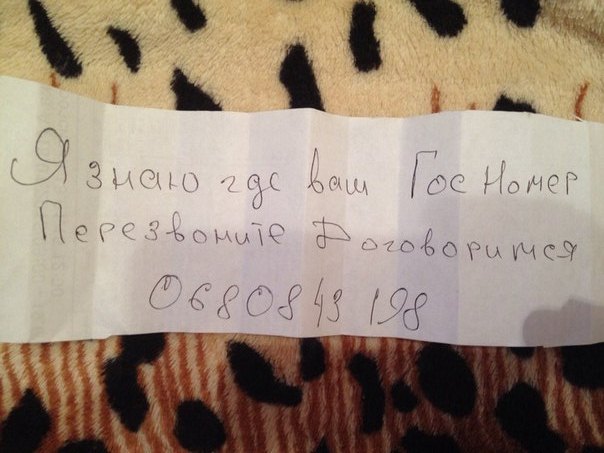 Я знаю где ваш Гос Номер
Перезвоните Договоримся
0680843 198